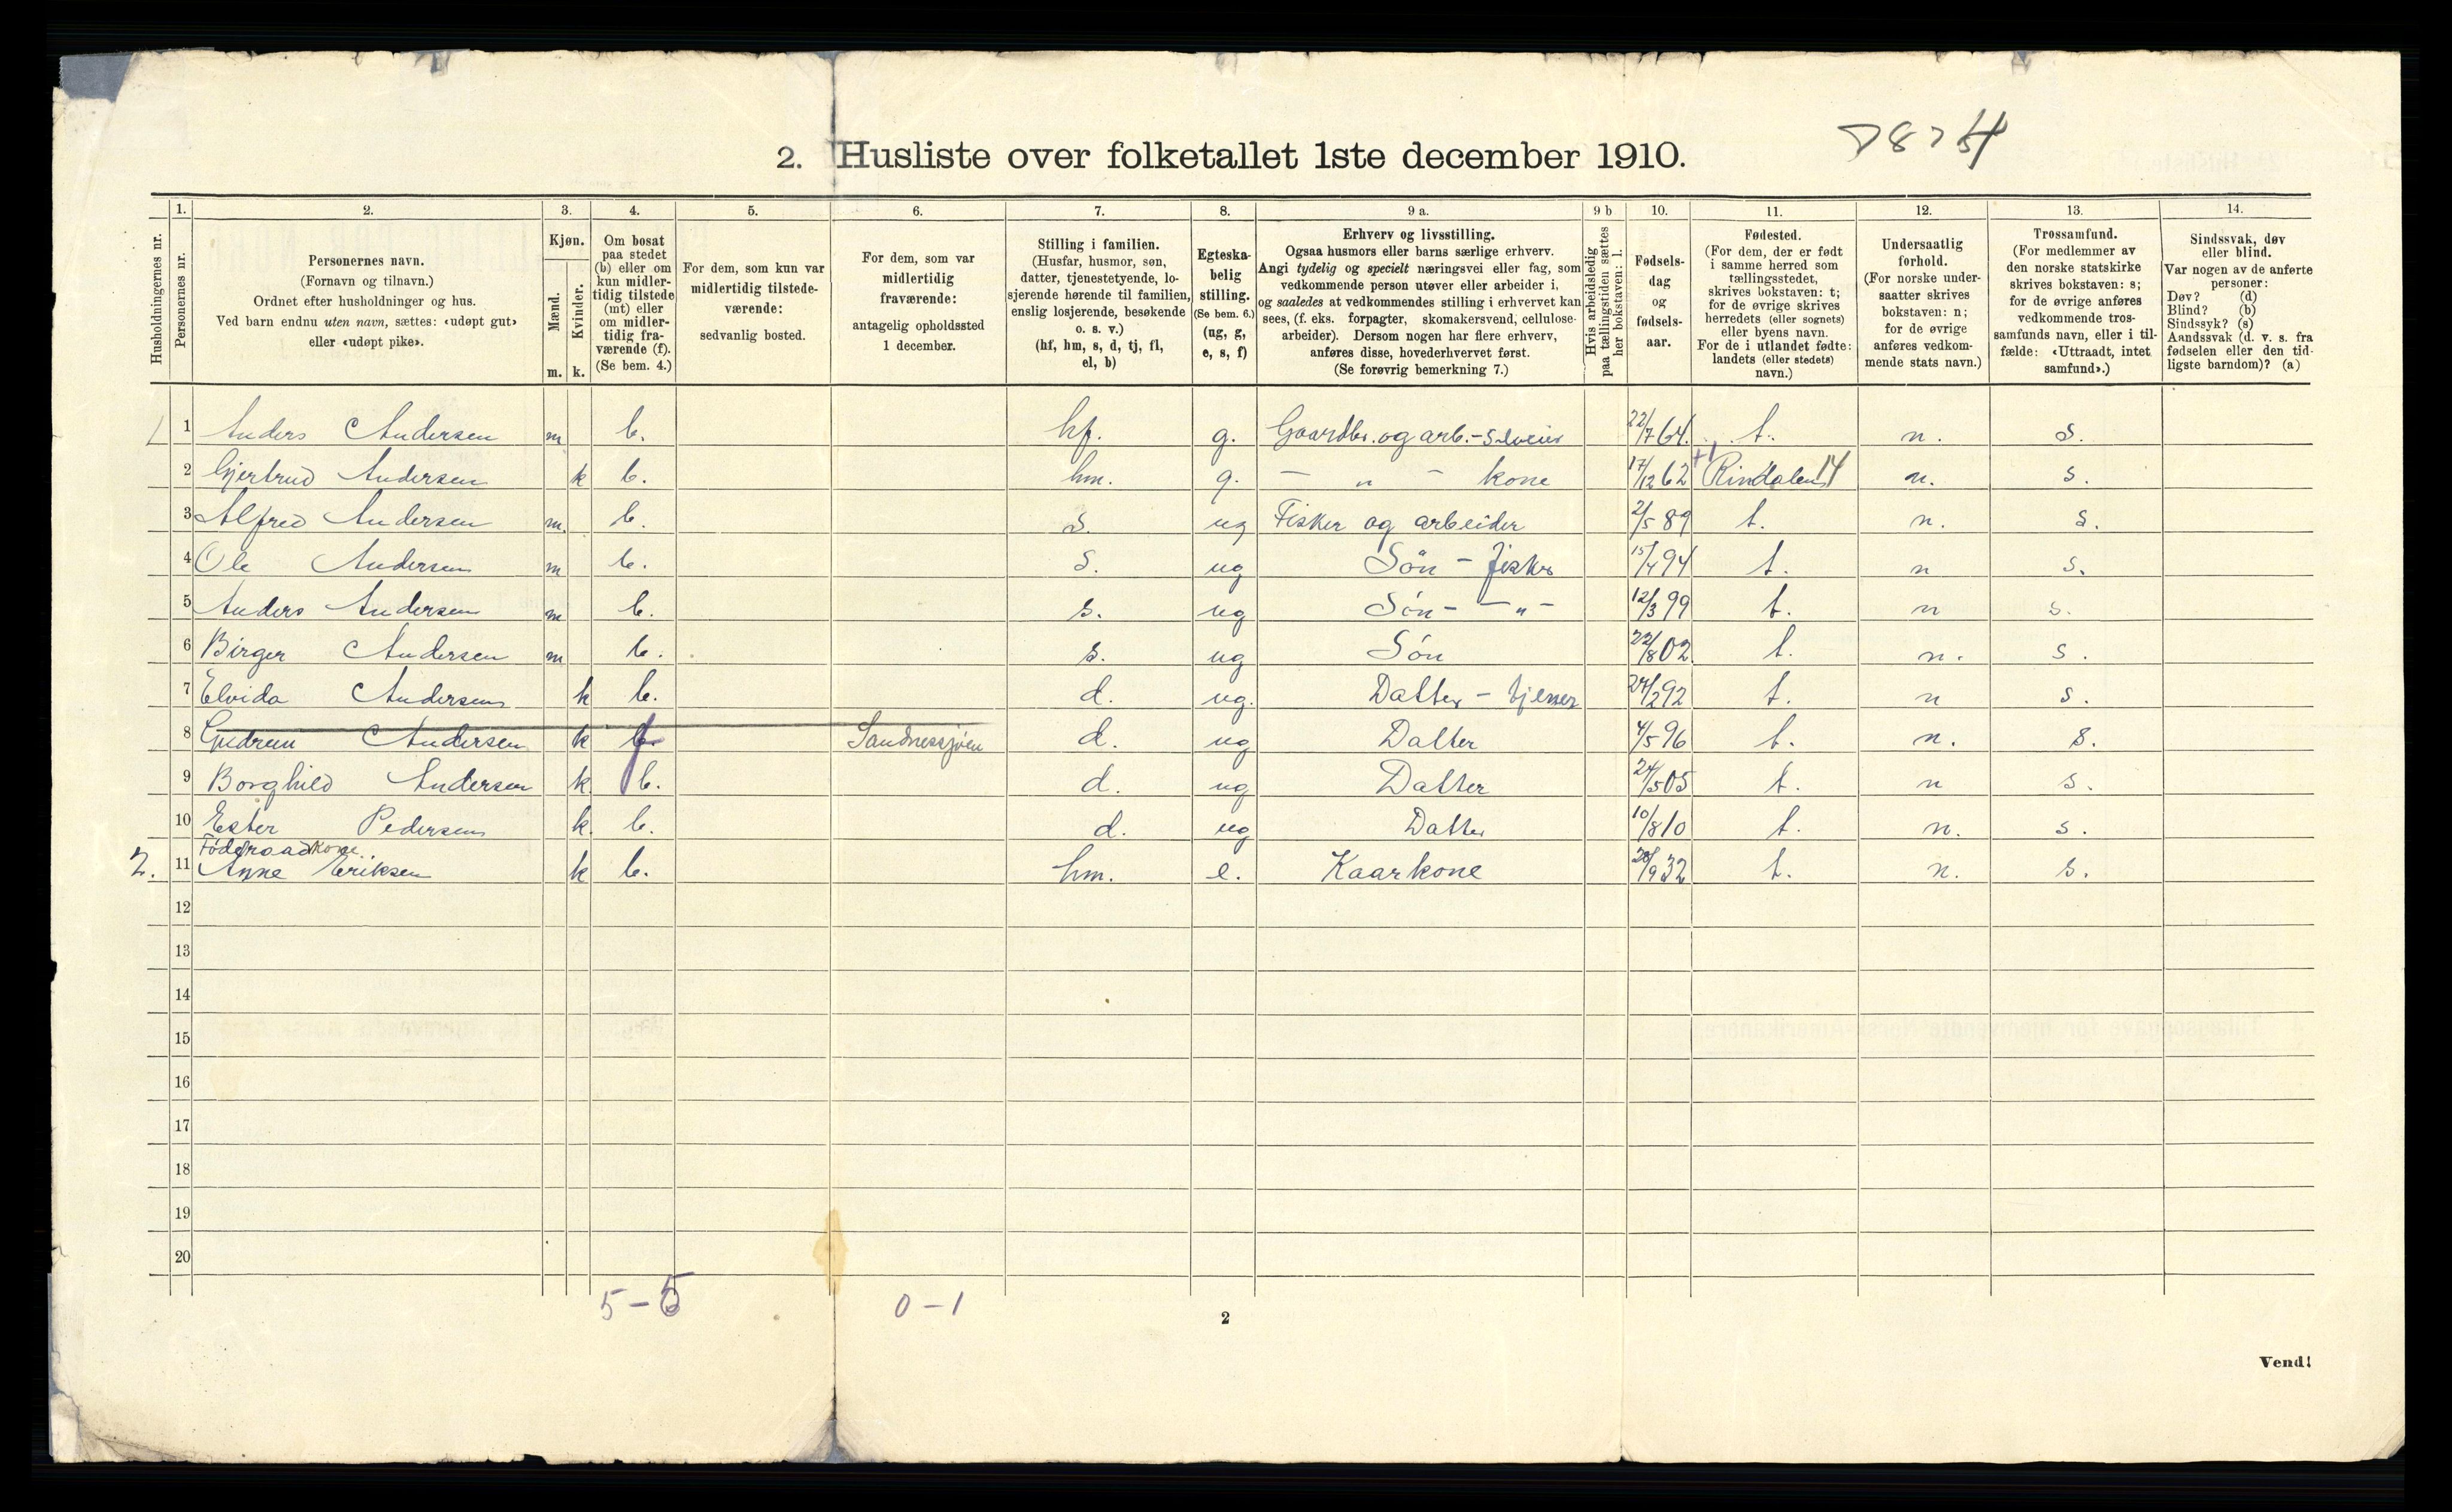 2. Husliste over folketallet 1ste december 1910.
Husholdningernes nr.
1.
Personernes nr.
2.
Personernes navn.
(Fornavn og tilnavn.)
Ordnet efter husholdninger og hus.
Ved barn endnu uten navn, sættes: «udøpt gut»
eller «udøpt pike».
3.
Kjøn.
Mænd.
Kvinder.
m. k.
4.
Om bosat
paa stedet
(b) eller om
kun midler-
tidig tilstede
(mt) eller
om midler-
tidig fra-
værende (f).
(Se bem. 4.)
5.
For dem, som kun var
midlertidig tilstede-
værende:
sedvanlig bosted.
6.
For dem, som var
midlertidig
fraværende:
antagelig opholdssted
1 december.
7.
Stilling i familien.
(Husfar, husmor, søn,
datter, tjenestetyende, lo-
sjerende hørende til familien,
enslig losjerende, besøkende
o. s. v.)
(hf, hm, s, d, tj, fl,
el, b)
8.
Egteska-
belig
stilling.
(Se bem. 6.)
(ug, g,
e, s, f)
9 a.
Erhverv og livsstilling.
Ogsaa husmors eller barns særlige erhverv.
Angi tydelig og specielt næringsvei eller fag, som
vedkommende person utøver eller arbeider i,
og saaledes at vedkommendes stilling i erhvervet kan
sees, (f. eks. forpagter, skomakersvend, cellulose-
arbeider). Dersom nogen har flere erhverv,
anføres disse, hovederhvervet først.
(Se forøvrig bemerkning 7.)
9 b
Hvis arbeidsledig
paa tællingstiden sættes
her bokstaven: l.
10.
Fødsels-
dag
og
fødsels-
aar.
11.
Fødested.
(For dem, der er født
i samme herred som
tællingsstedet,
skrives bokstaven: t;
for de øvrige skrives
herredets (eller sognets)
eller byens navn.
For de i utlandet fødte:
landets (eller stedets)
navn.)
12.
Undersaatlig
forhold.
(For norske under-
saatter skrives
bokstaven: n;
for de øvrige
anføres vedkom-
mende stats navn.)
13.
Trossamfund.
(For medlemmer av
den norske statskirke
skrives bokstaven: s;
for de øvrige anføres
vedkommende tros-
samfunds navn, eller i til-
fælde: «Uttraadt, intet
samfund».)
14.
Sindssvak, døv
eller blind.
Var nogen av de anførte
personer:
Døv? (d)
Blind? (b)
Sindssyk? (s)
Aandssvak (d. v. s. fra
fødselen eller den tid-
ligste barndom)? (a)
1 1 Anders Andersen m b. hf. g. Gaardbr. og arb. - Selveier 22/7 64. t. n. s.
2 Gjertrud Andersen k b. hm. g. — " — kone 17/12 62 Rindalen 14 n. s.
3 Alfred Andersen m. b. s. ug Fisker og arbeider 2/5 89 t. n. s.
4 Ole Andersen m b. s. ug Søn - fisker 15/4 94 t. n s.
5 Anders Andersen m b. s. ug Søn - — " — 12/3 99 t. n s.
6 Birger Andersen m b. s. ug Søn 22/8 02 t. n. s.
7 Elvida Andersen k b. d. ug. Datter - tjener 24/2 92 t. n s.
8 Gudrun Andersen k f Sandnessjøen d. ug Datter 4/5 96 t. n. s.
9 Borghild Andersen k. b. d. ug Datter 24/5 05 t. n s.
10 Ester Pedersen k. b. d. ug Datter 10/8 10 t. n. s.
Føderaadkone
2. 11 Anne Eriksen k b. hm. e. Kaarkone 28/9 32 t. n. s.
12
13
14
15
16
17
18
19
20
5 - 5 0 - 1
2
Vend!